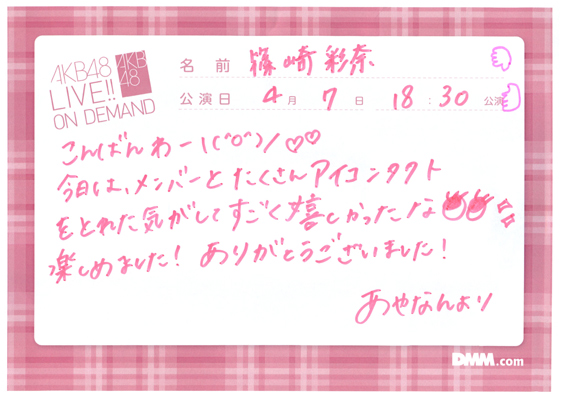 AKB48
LIVE!!
ON DEMAND
AKB
48
名 前 篠崎彩奈
公演日 4月 7日 18:30 公演
こんばんわー!(^o^)/♡♡
今日は、メンバーとたくさんアイコンタクト
をとれた気がしてすごく嬉しかったな
楽しめました! ありがとうございました!
あやなんより
DMM.com